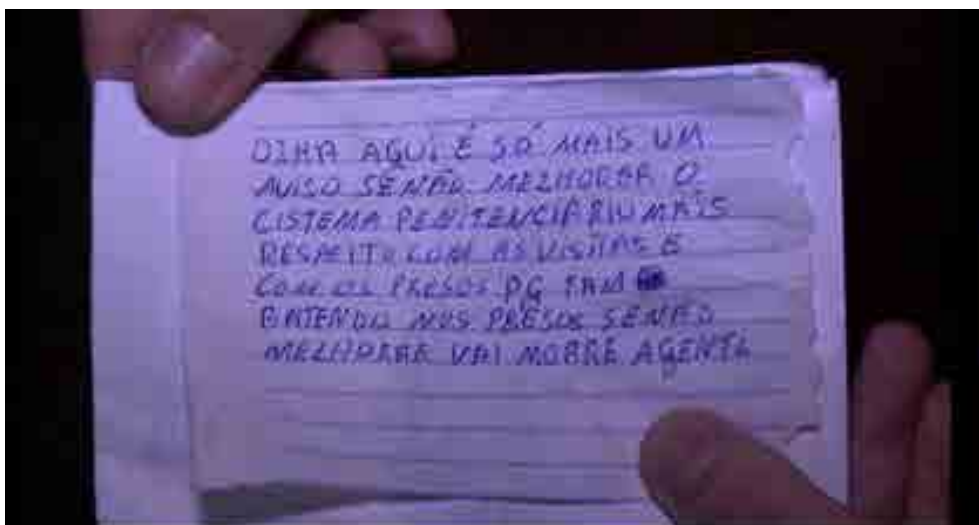 OLHA AQUI É SÓ MAIS UM
AVISO SENÃO MELHORAR O
CISTEMA PENITENCIARIU MAIS
RESPEITO COM AS VISITAS E
COM OS PRESOS PQ TAM
BATENDO NOS PRESOS SENÃO
MELHORAR VAI MORRE AGENTE